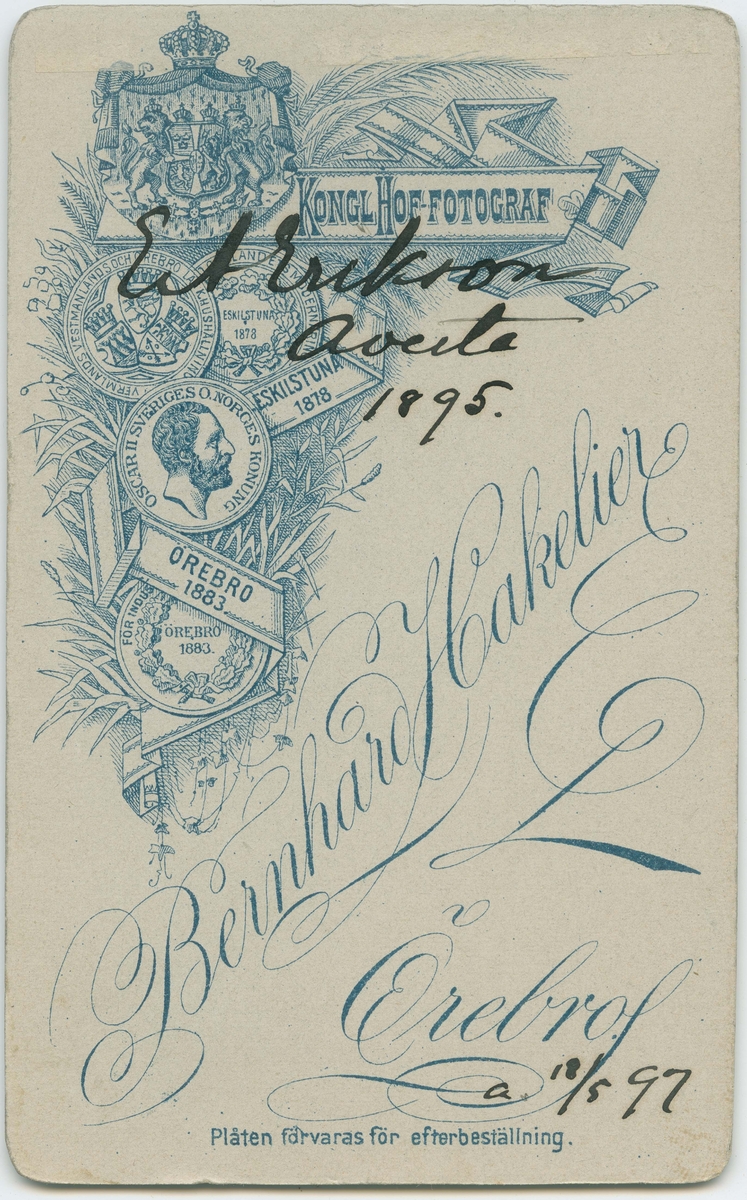 KONGL HOF-FOTOGRAF
E A Erikson
Avesta
1895.
ESKILSTUNA
1878
ESKILSTUNA
1878
OSCAR II SVERIGES O. NORGES KONUNG
ÖREBRO
1883.
FÖR INDUS
ÖREBRO
1883.
Bernhard Hakelier
Örebro.
a. 18/5 97
Plåten förvaras för efterbeställning.